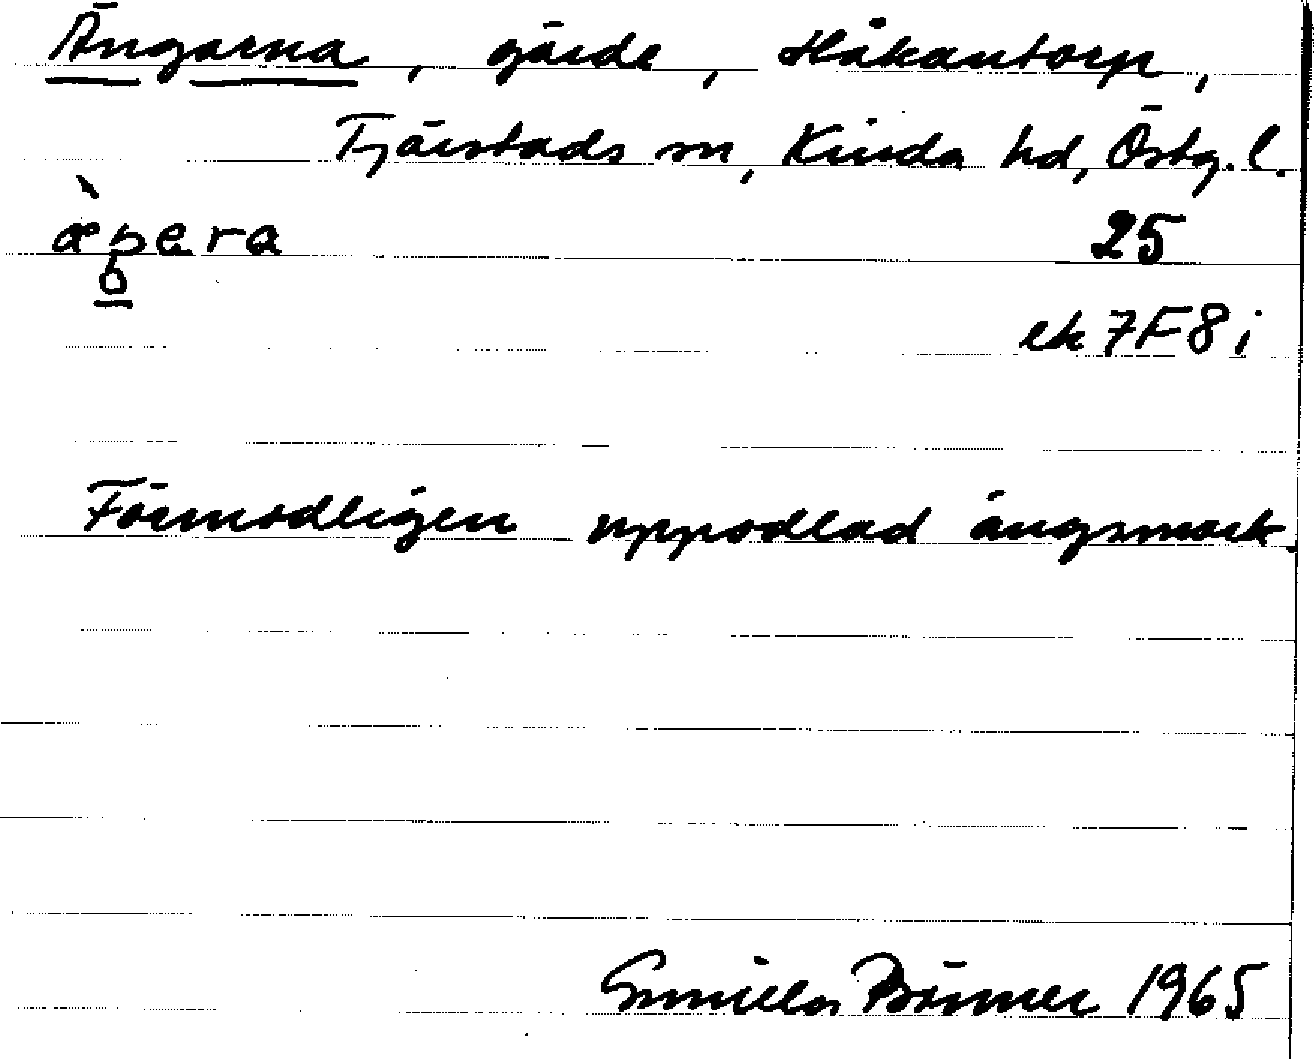 Ängarna, gärde, Håkantorp,
Tjärstads sn, Kinda hd, Östg. l.
25
ek 7F8i
Förmodligen uppodlad ängsmark.
Gunilla 1965